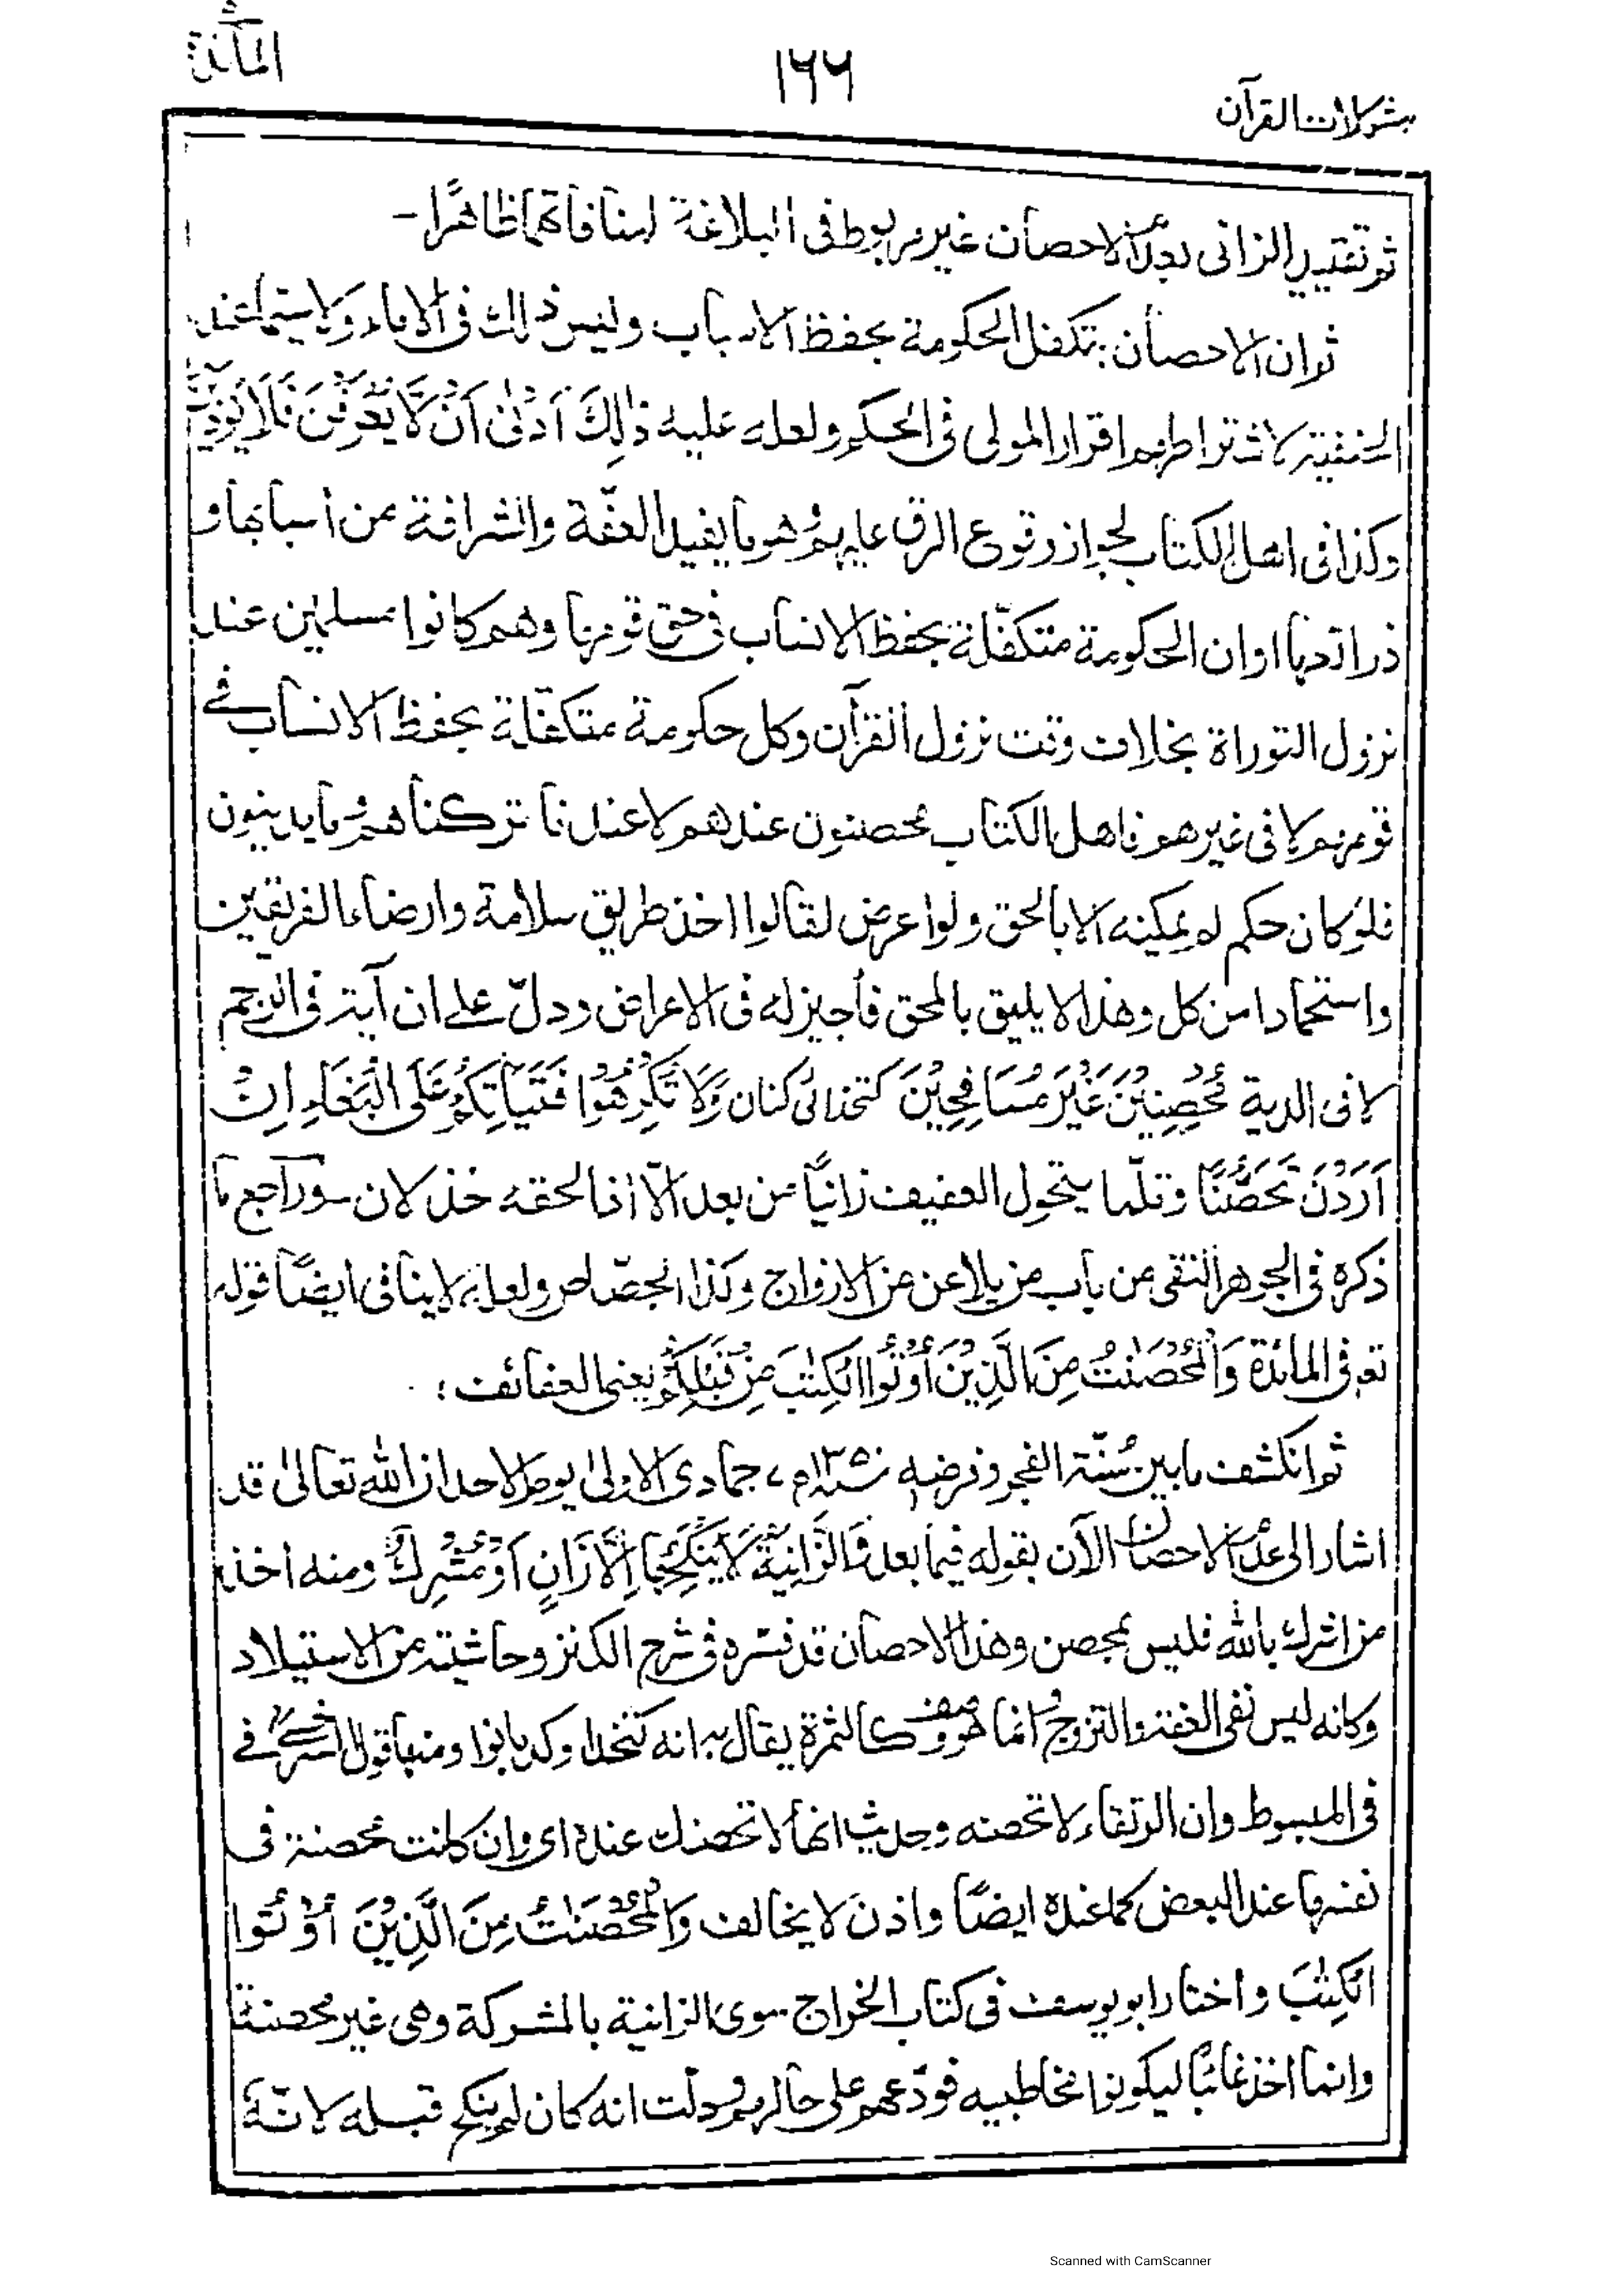 المائدة
١٦٦
مشكلات القرآن
ثم تقييد الزانى بعدم الاحصان غير مربوط فى البلاغة لمنافاتهما ظاهرًا -
ثم ان الاحصان: تكفل الحكومة بحفظ الانساب وليس ذلك فى الاماء ولا سيما عند
الحنفية لاشتراطهم اقرار المولى فى الحكم ولعله عليه ذٰلِكَ اَدْنٰى اَنْ يُّعْرَفْنَ فَلَا يُؤْذَيْنَ
وكذا فى اهل الكتاب لجواز وقوع الرق عليهم ثم هو ما يفيد العفّة والشرافة من أسبابها و
ان الحكومة متكفّلة بحفظ الانساب فى حق قومها وهم كانوا مسلمين عند
نزول التوراة بخلاف وقت نزول القرآن وكل حكومة متكفّلة بحفظ الانساب فے
قومهم لا فى غيرهم فاهل الكتاب محصنون عندهم لا عندنا تركناهم وما يدينون
فلو كان حكم لم يمكنه الا بالحق ولو اعرض لقالوا اخذ طريق سلامة وارضاء الفريقين
واستحمادا من كل وهذا لا يليق بالمحق فأجيز له فى الاعراض ودلّ على ان آية فى الرجم
لا فى الدية مُحْصِنِيْنَ غَيْرَ مُسَافِحِيْنَ كتخدائى كنان وَلَا تُكْرِهُوْا فَتَيَاتِكُمْ عَلَى الْبِغَاءِ اِنْ
اَرَدْنَ تَحَصُّنًا وقلّما يتحول العفيف زانيًا من بعد الّا اذا لحقه خذلان وراجع ما
ذكره فى الجوهر النقى من باب من يلاعن من الازواج وكذا الجصّاص ولعله لا ينافى ايضًا قوله
تعالى فى المائدة وَالْمُحْصَنٰتُ مِنَ الَّذِيْنَ اُوْتُوا الْكِتٰبَ مِنْ قَبْلِكُمْ يعنى العفائف؛
ثم انكشف ما بين سُنّة الفجر وفرضه ١٣٥٠ جمادى الاولىٰ يوم الاحد ان الله تعالىٰ قد
اشار الى عدم الاحصان الآن بقوله فيما بعد وَالزَّانِيَةُ لَا يَنْكِحُهَا اِلَّا زَانٍ اَوْ مُشْرِكٌ ومنه اخذ
من اشرك بالله فليس بمحصن وهذا الاحصان قد فسّره فى شرح الكنز وحاشيته من الاستيلاد
وكانه ليس نفى العفة والتزوج انما هو وصف كالثمرة يقال به انه كتخدا وكدبانوا ومنها قول السرخسى فے
فى المبسوط وان الرتقاء لا تحصنه وحديث انها لا تحصنك عنده اى وان كانت محصنة فى
نفسها عند البعض كما عنده ايضًا واذن لا يخالف وَالْمُحْصَنٰتُ مِنَ الَّذِيْنَ اُوْتُوا
الْكِتٰبَ واختار ابو يوسف فى كتاب الخراج سوى الزانية بالمشركة وهى غير محصنة
وانما اخذ غائبًا ليكونوا مخاطبيه فودّعهم على حالهم ودلّت انه كان لم ينكح قبله لانّه
Scanned with CamScanner